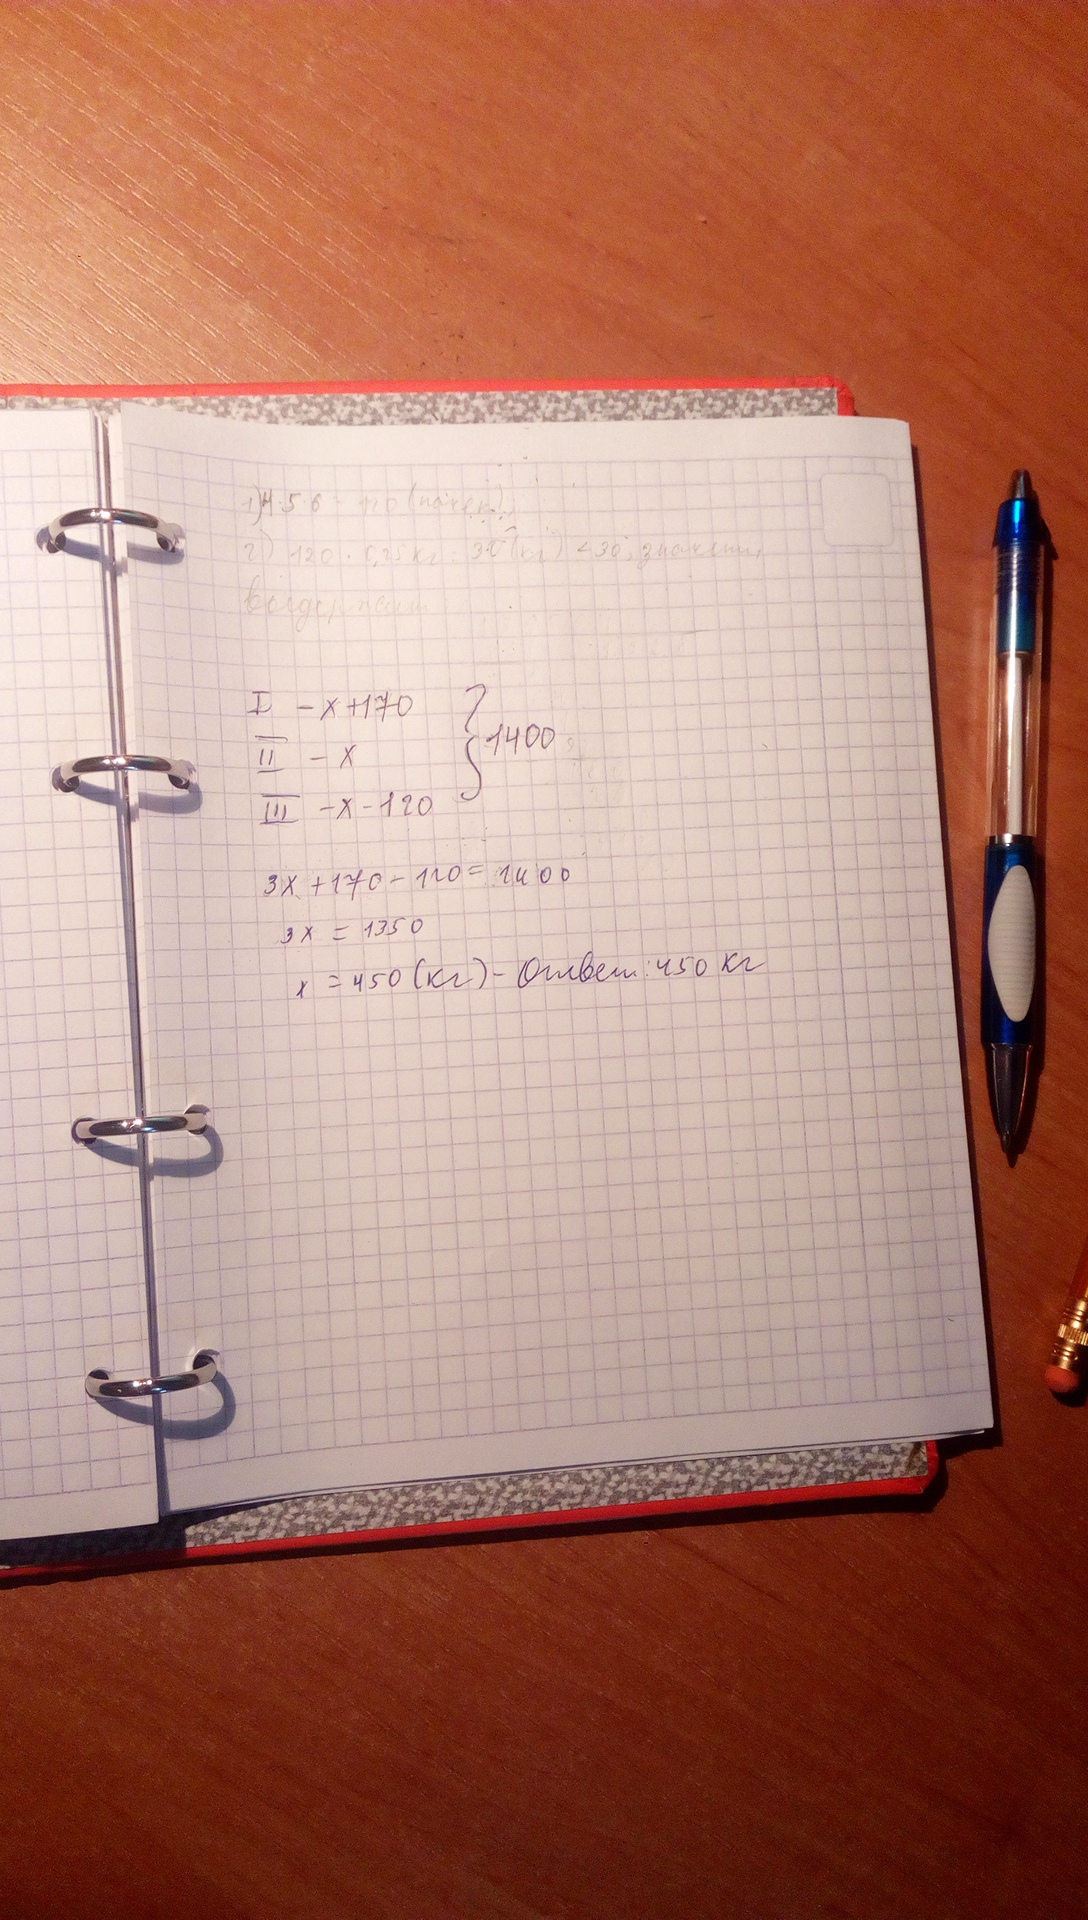 1) 4·5·6 = 120 (пачек)
2) 120 · 0,25 кг = 30 (кг) < 30, значит,
выдержит
I – x + 170
II – x
III – x – 120
} 1400
3x + 170 – 120 = 1400
3x = 1350
x = 450 (кг) – Ответ: 450 кг